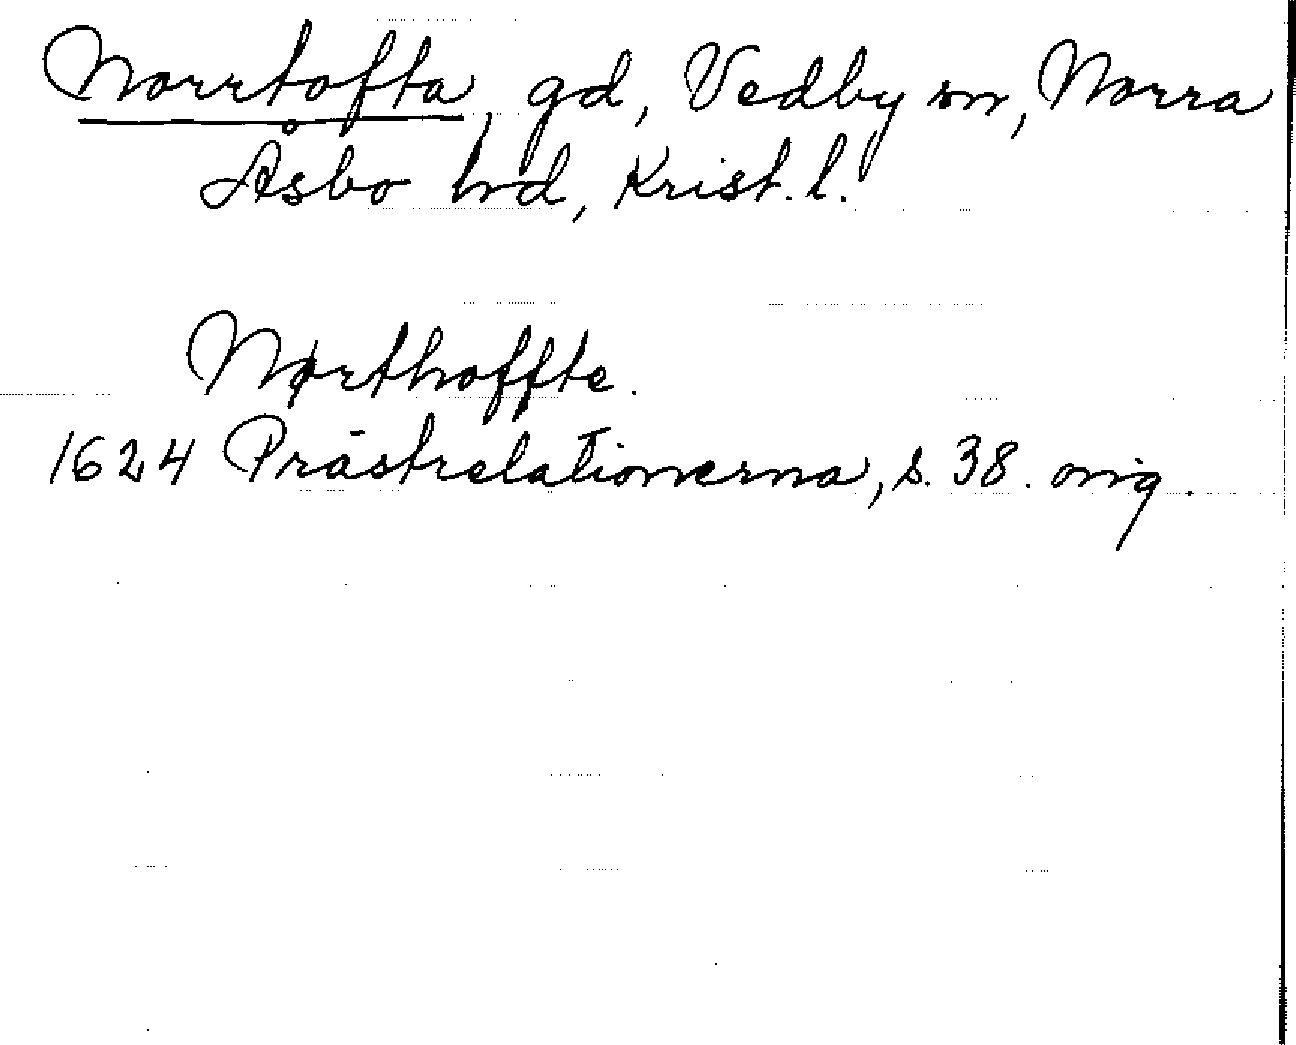 Norrtofta, gd, Vedby sn, Norra
Åsbo hd, Krist. l.
Nørthoffte.
1624 Prästrelationerna, s. 38. orig.